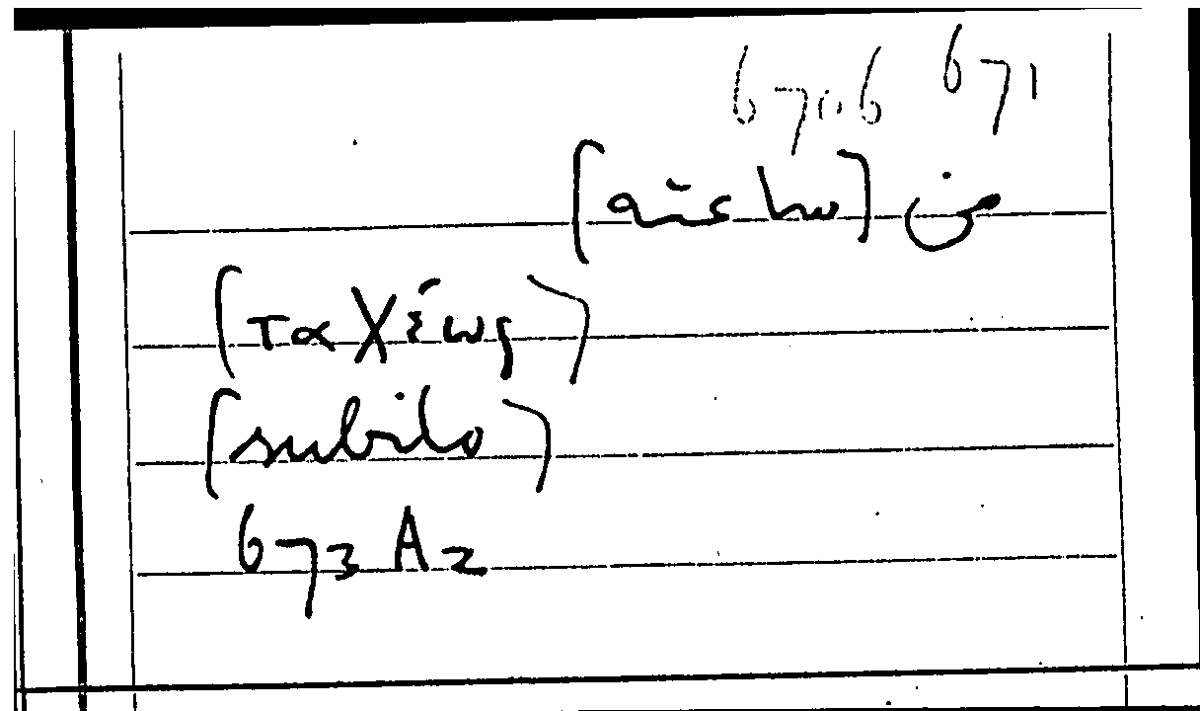 6706 671
من [ساعته]
[ταχέως]
[subito]
673 A2